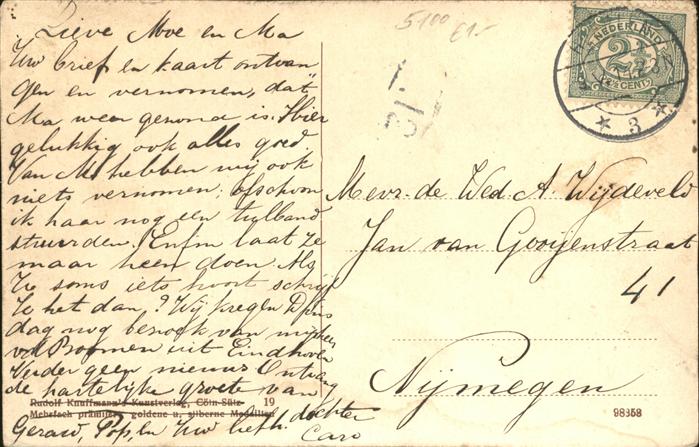 Lieve Moe en Ma
Uw brief en kaart ontvan
gen en vernomen, dat
Ma weer gezond is. Hier
gelukkig ook alles goed.
Van M. hebben wij ook
niets vernomen; ofschoon
ik haar nog een tulband
stuurden. Enfin laat ze
maar heen doen. Als
U soms iets hoort schrijf
U het dan? Wij kregen Dins
dag nog bezoek van mijnheer
v.d. Boomen uit Eindhoven
Verder geen nieuws Ontvang
de hartelijke groete van
Rudolf Knuffmann's Kunstverlag, Cöln-Sülz 19
Mehrfach prämiiert, goldene u. silberne Medaillen
Gerard, Pop, en Uw liefh. dochter
Caro
5100
€1.-
NEDERLAND
2½
2½ CENT
3
Mevr. de Wed. A. Wijdeveld
Jan van Gooijenstraat
41
Nijmegen
98358